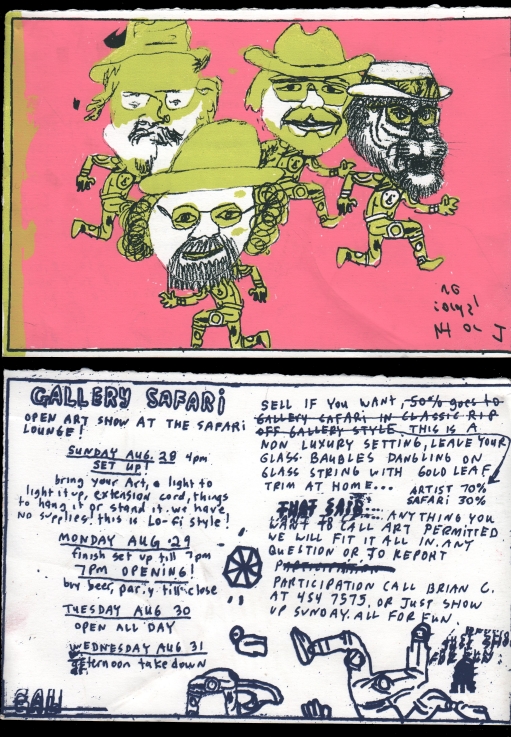 GALLERY SAFARI
OPEN ART SHOW AT THE SAFARI
LOUNGE!
SUNDAY AUG. 28 4pm
SET UP!
bring your Art, a light to
light it up, extension cord, things
to hang it or stand it. we have
NO supplies! this is Lo-fi style!
MONDAY AUG 29
finish set up till 7pm
7PM OPENING!
buy beer, party till close
TUESDAY AUG 30
OPEN ALL DAY
WEDNESDAY AUG 31
afternoon take down
SELL IF YOU WANT, 50% goes to
GALLERY SAFARI IN CLASSIC RIP
OFF GALLERY STYLE THIS IS A
NON LUXURY SETTING, LEAVE YOUR
GLASS BAUBLES DANGLING ON
GLASS STRING WITH GOLD LEAF
TRIM AT HOME...
ARTIST 70%
SAFARI 30%
THAT SAID... ANYTHING YOU
WANT TO CALL ART PERMITTED
WE WILL FIT IT ALL IN. ANY
QUESTION OR TO REPORT
PARTICIPATION CALL BRIAN C.
AT 454 7575. OR JUST SHOW
UP SUNDAY. ALL FOR FUN.
FOR FUN